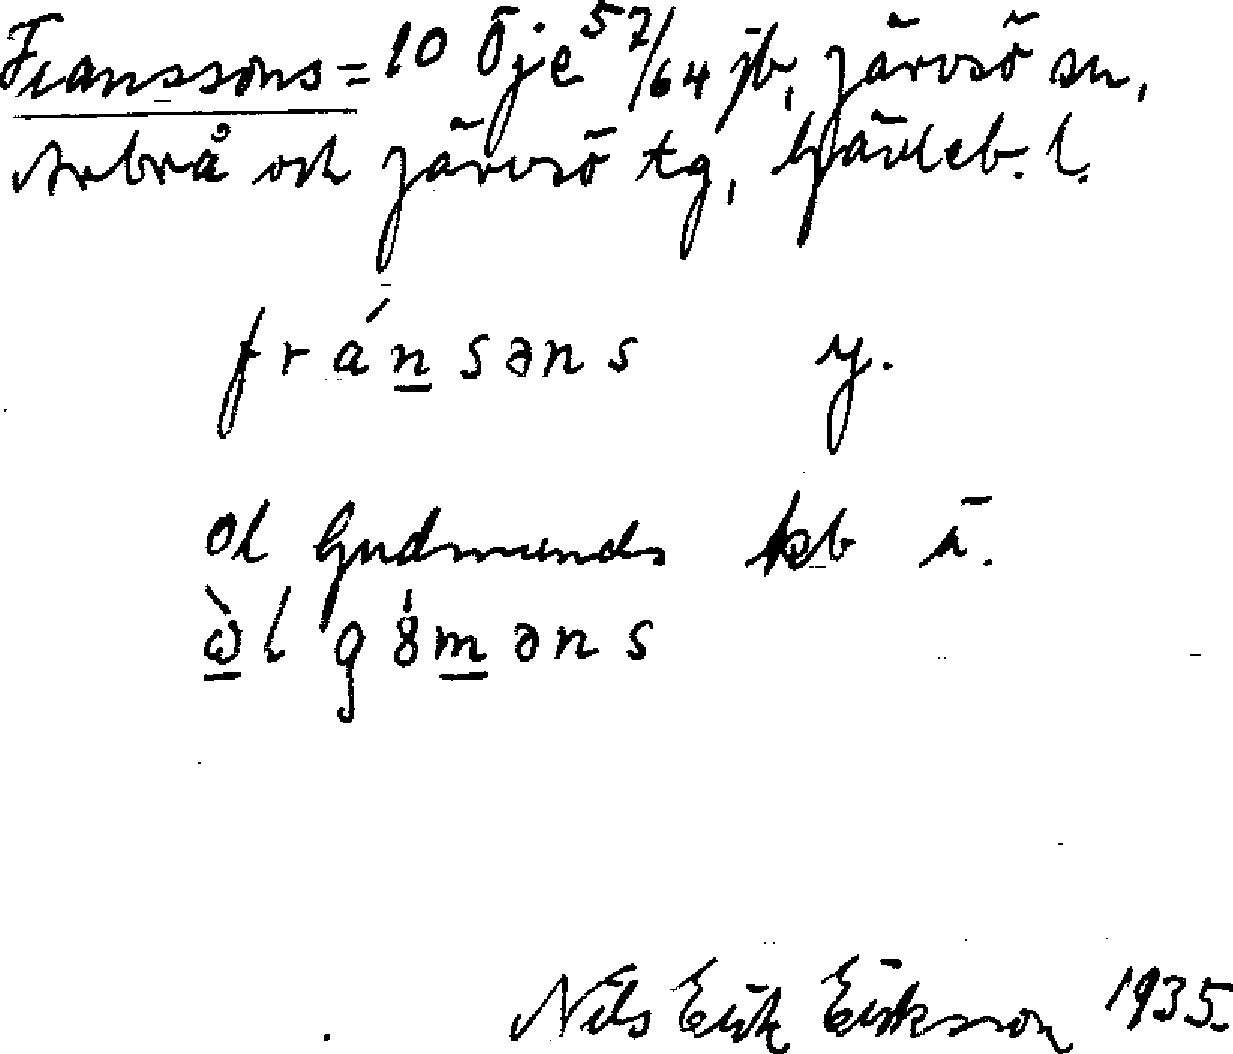 Franssons = 10 Öje 57/64 jb, Järvsö sn,
Arbrå och Järvsö tg, Gävleb. l.
fránsəns y.
Ol Gudmunds kb ä.
ὼl g8́məns
Nils Erik Eriksson 1935.